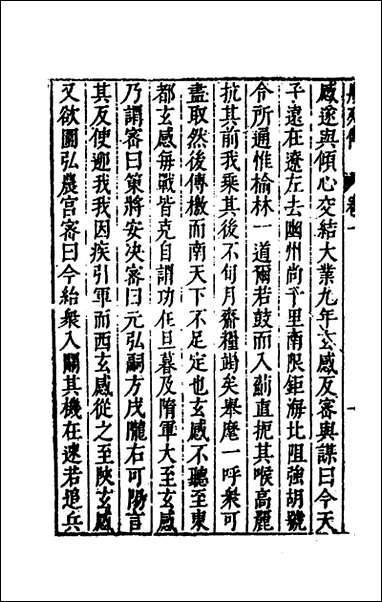 感遂與傾心交結大業九年玄感反審與謀曰今天
子遠在遼左去幽州尚千里南限鉅海北阻強胡號
令所通惟榆林一道爾若鼓而入薊直扼其喉高麗
抗其前我乘其後不旬月齎糧竭矣舉麾一呼衆可
盡取然後傳檄而南天下不足定也玄感不聽至東
都玄感每戰皆克自謂功在旦暮及隋軍大至玄感
乃謂審曰策將安決審曰元弘嗣方戌隴右可陽言
其反使迎我我因疾引軍而西玄感從之至陝玄感
又欲圍弘農宮審曰今紿衆入關其機在速若追兵